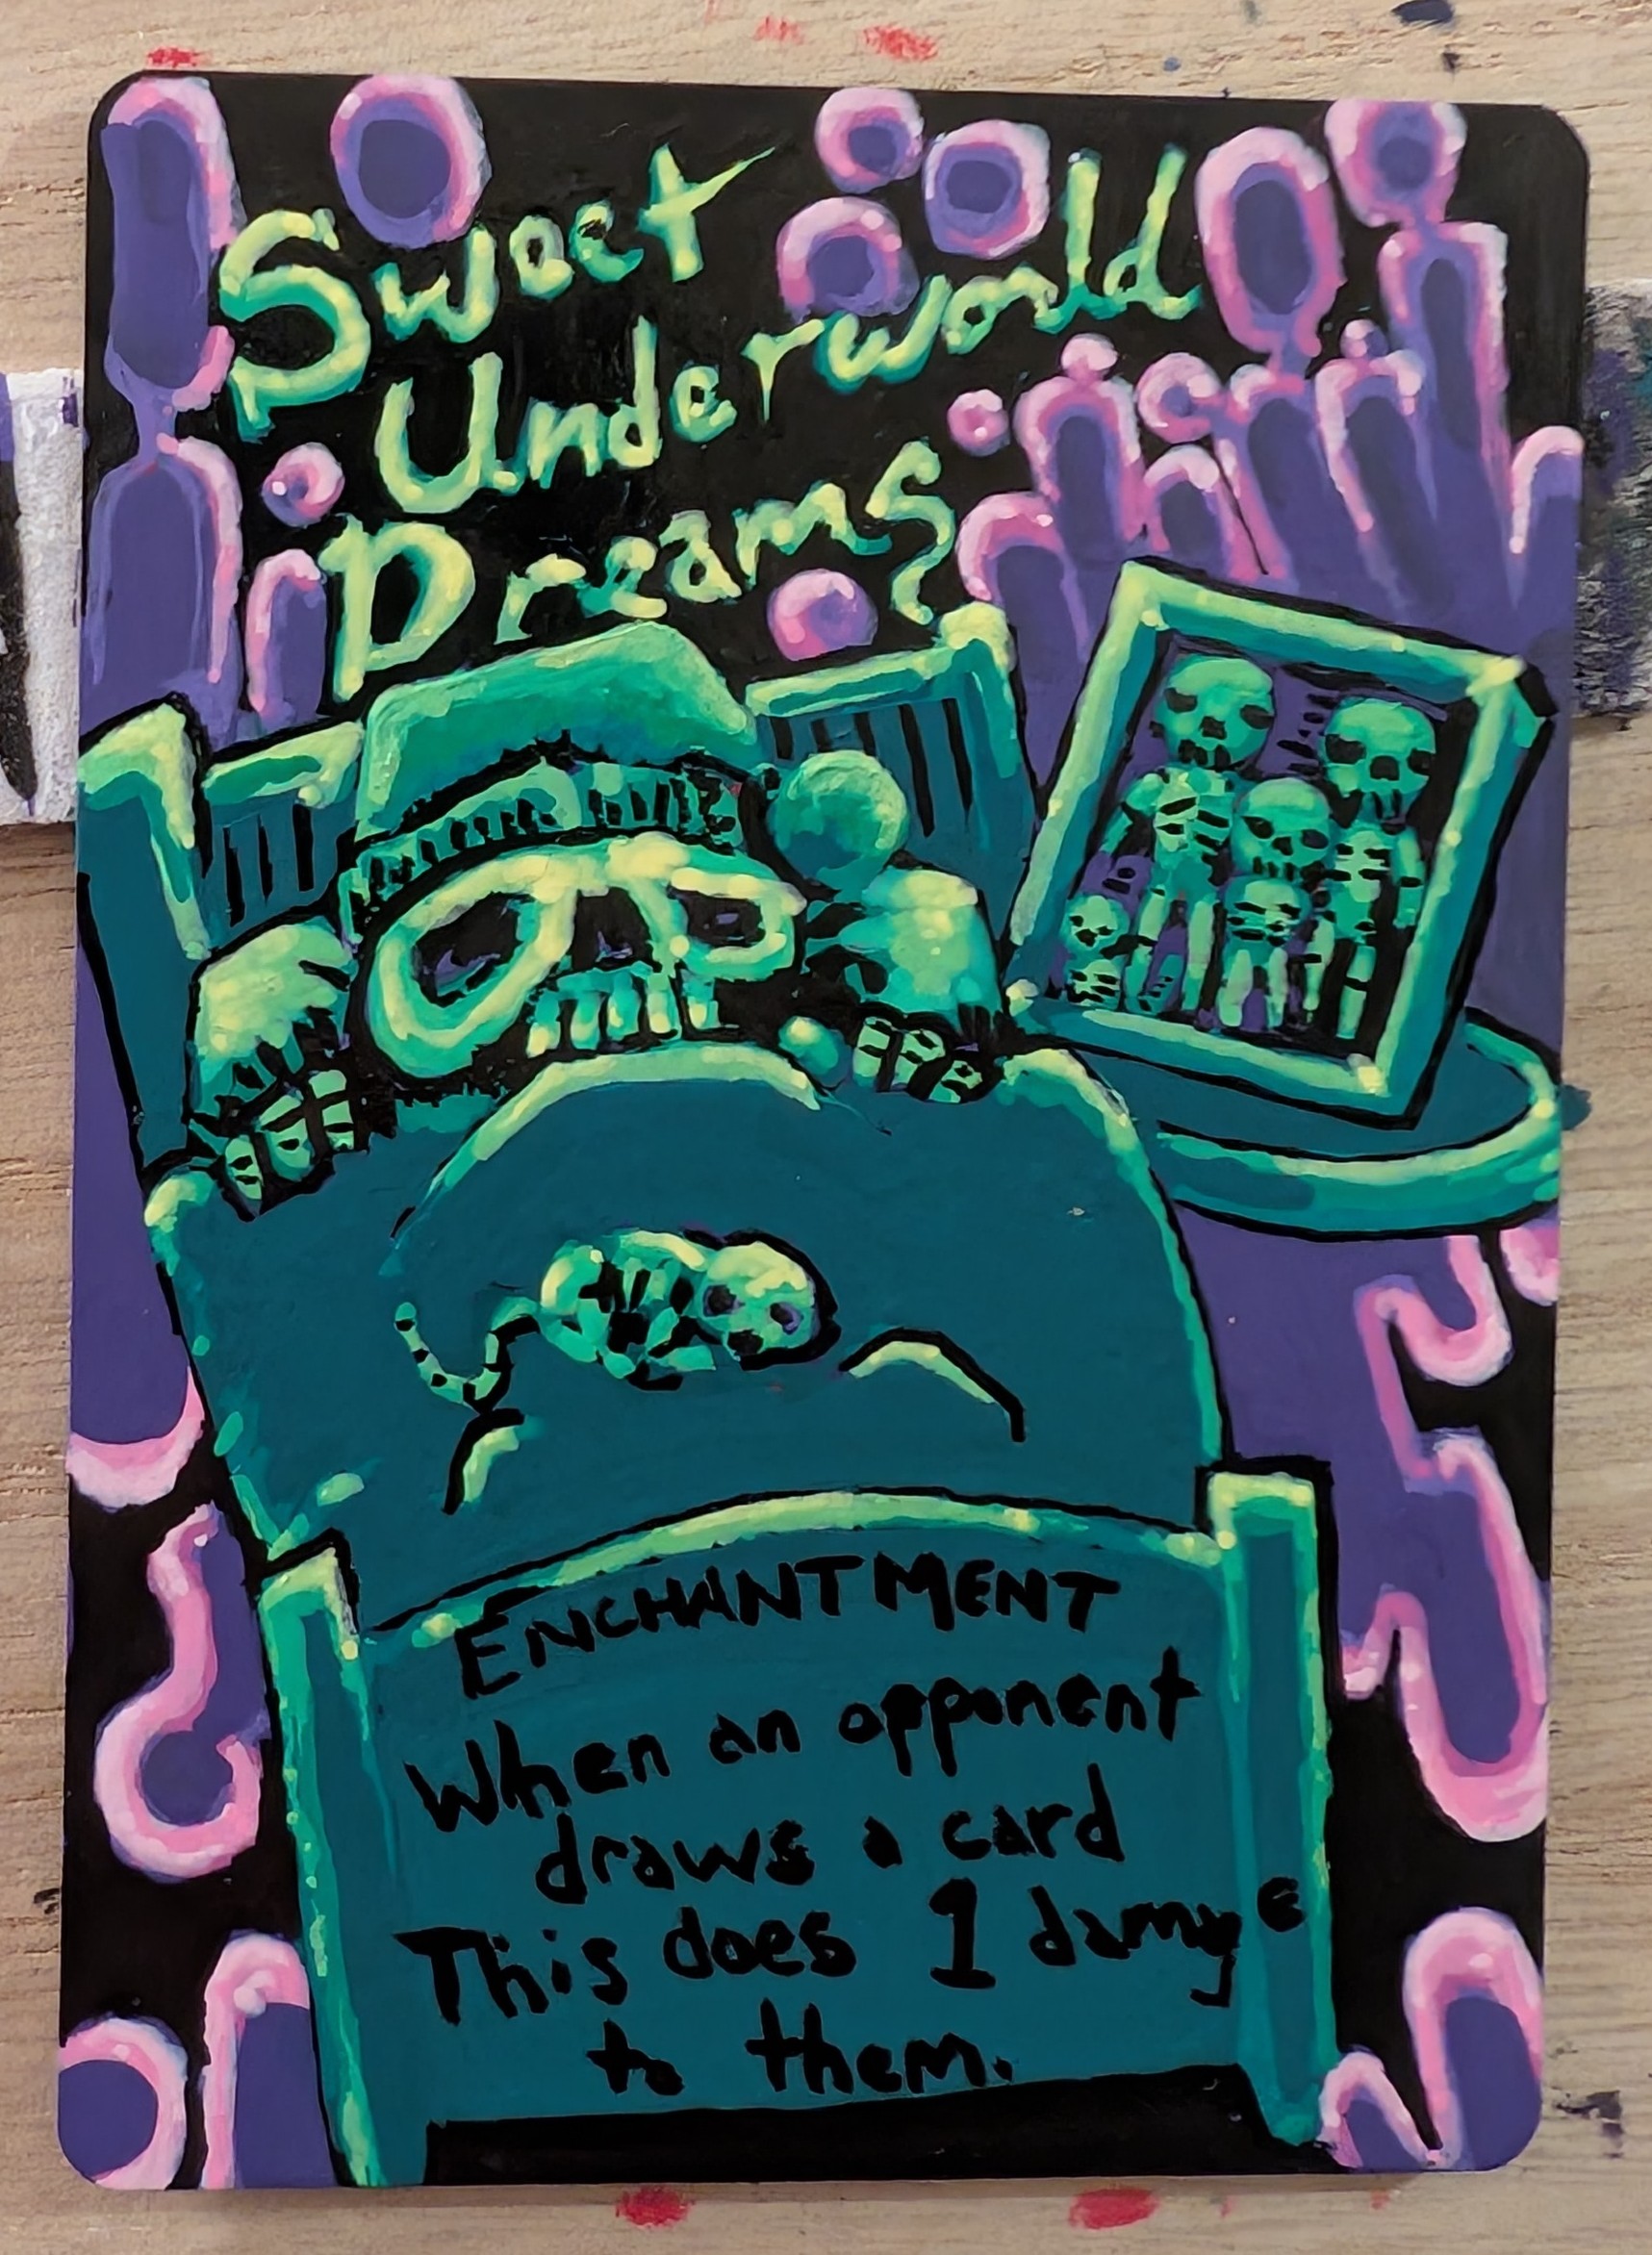 Sweet
Underworld
Dreams
ENCHANTMENT
When an opponent
draws a card
This does 1 damage
to them.